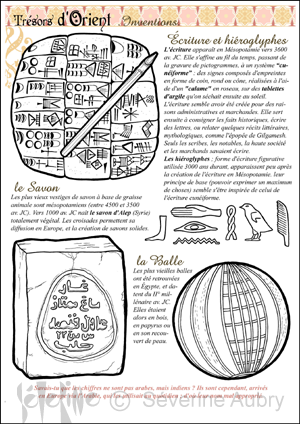 Trésors d'Orient Inventions
Ecriture et hiéroglyphes
L'écriture apparaît en Mésopotamie vers 3600
av. JC. Elle s'affine au fil du temps, passant de
la gravure de pictogrammes, à un système "cu-
néiforme" : des signes composés d'empreintes
en forme de coin, rond ou cône, réalisées à l'ai-
de d'un "calame" en roseau, sur des tablettes
d'argile qu'on séchait ensuite au soleil.
L'écriture semble avoir été créée pour des rai-
sons administratives et marchandes. Elle sert
ensuite à consigner les faits historiques, écrire
des lettres, ou relater quelques récits littéraires,
mythologiques, comme l'épopée de Gilgamesh.
Seuls les scribes, les notables, la haute société
et les marchands savaient écrire.
Les hiéroglyphes : forme d'écriture figurative
utilisée 3000 ans durant, apparaissent peu après
la création de l'écriture en Mésopotamie. leur
principe de base (pouvoir exprimer un maximum
de choses) semble s'être inspiré de celui de
l'écriture cunéiforme.
le Savon
Les plus vieux vestiges de savon à base de graisse
animale sont mésopotamiens (entre 4500 et 3500
av. JC). Vers 1000 av. JC naît le savon d'Alep (Syrie)
totalement végétal. Les croisades permettent sa
diffusion en Europe, et la création de savons solides.
la Balle
Les plus vieilles balles
ont été retrouvées
en Egypte, et da-
tent du IIe mil-
lénaire av. JC.
Elles étaient
alors en bois,
en papyrus ou
en son recou-
vert de peau.
غار
حلب
Savais-tu que les chiffres ne sont pas arabes, mais indiens ? Ils sont cependant, arrivés
en Europe
© Séverine Aubry